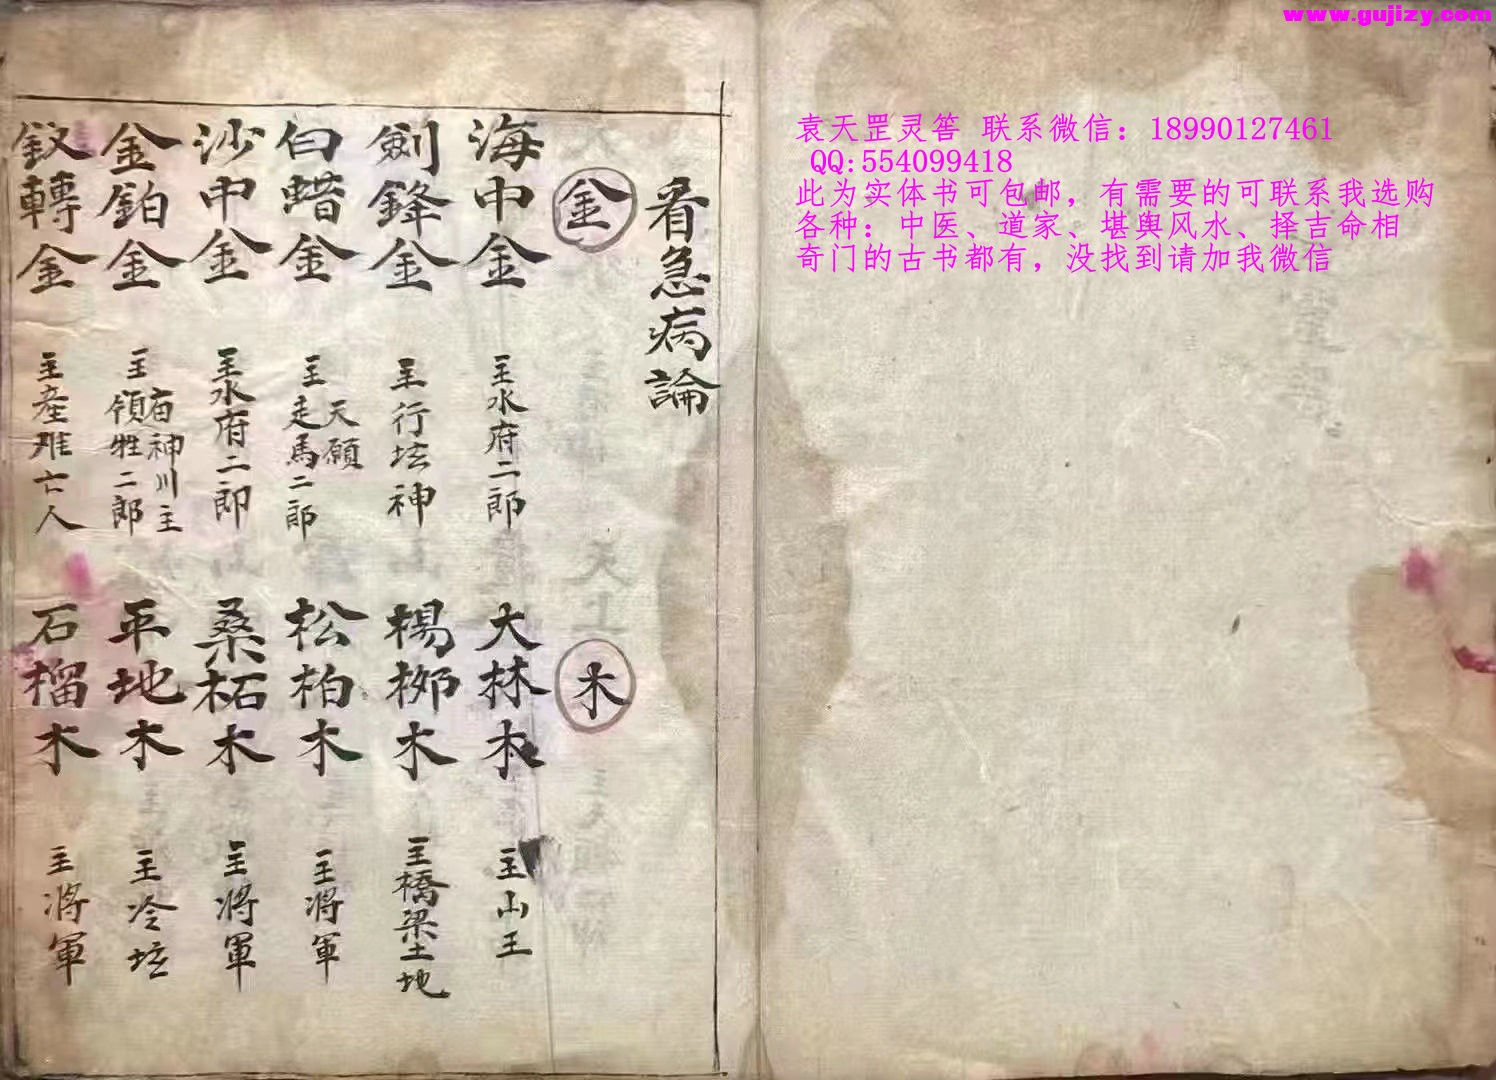 www.gujizy.com
袁天罡灵筶 联系微信：18990127461
QQ:554099418
此为实体书可包邮，有需要的可联系我选购
各种：中医、道家、堪舆风水、择吉命相
奇门的古书都有，没找到请加我微信
看急病論
金
海中金 主水府二郎
劍鋒金 主行坛神
白蜡金 主天願走馬二郎
沙中金 主水府二郎
金鉑金 主有神川主領牲二郎
釵轉金 主産难亡人
木
大林木 主山王
楊栁木 主橋梁土地
松柏木 主将軍
桑柘木 主将軍
平地木 主冷坛
石榴木 主将軍